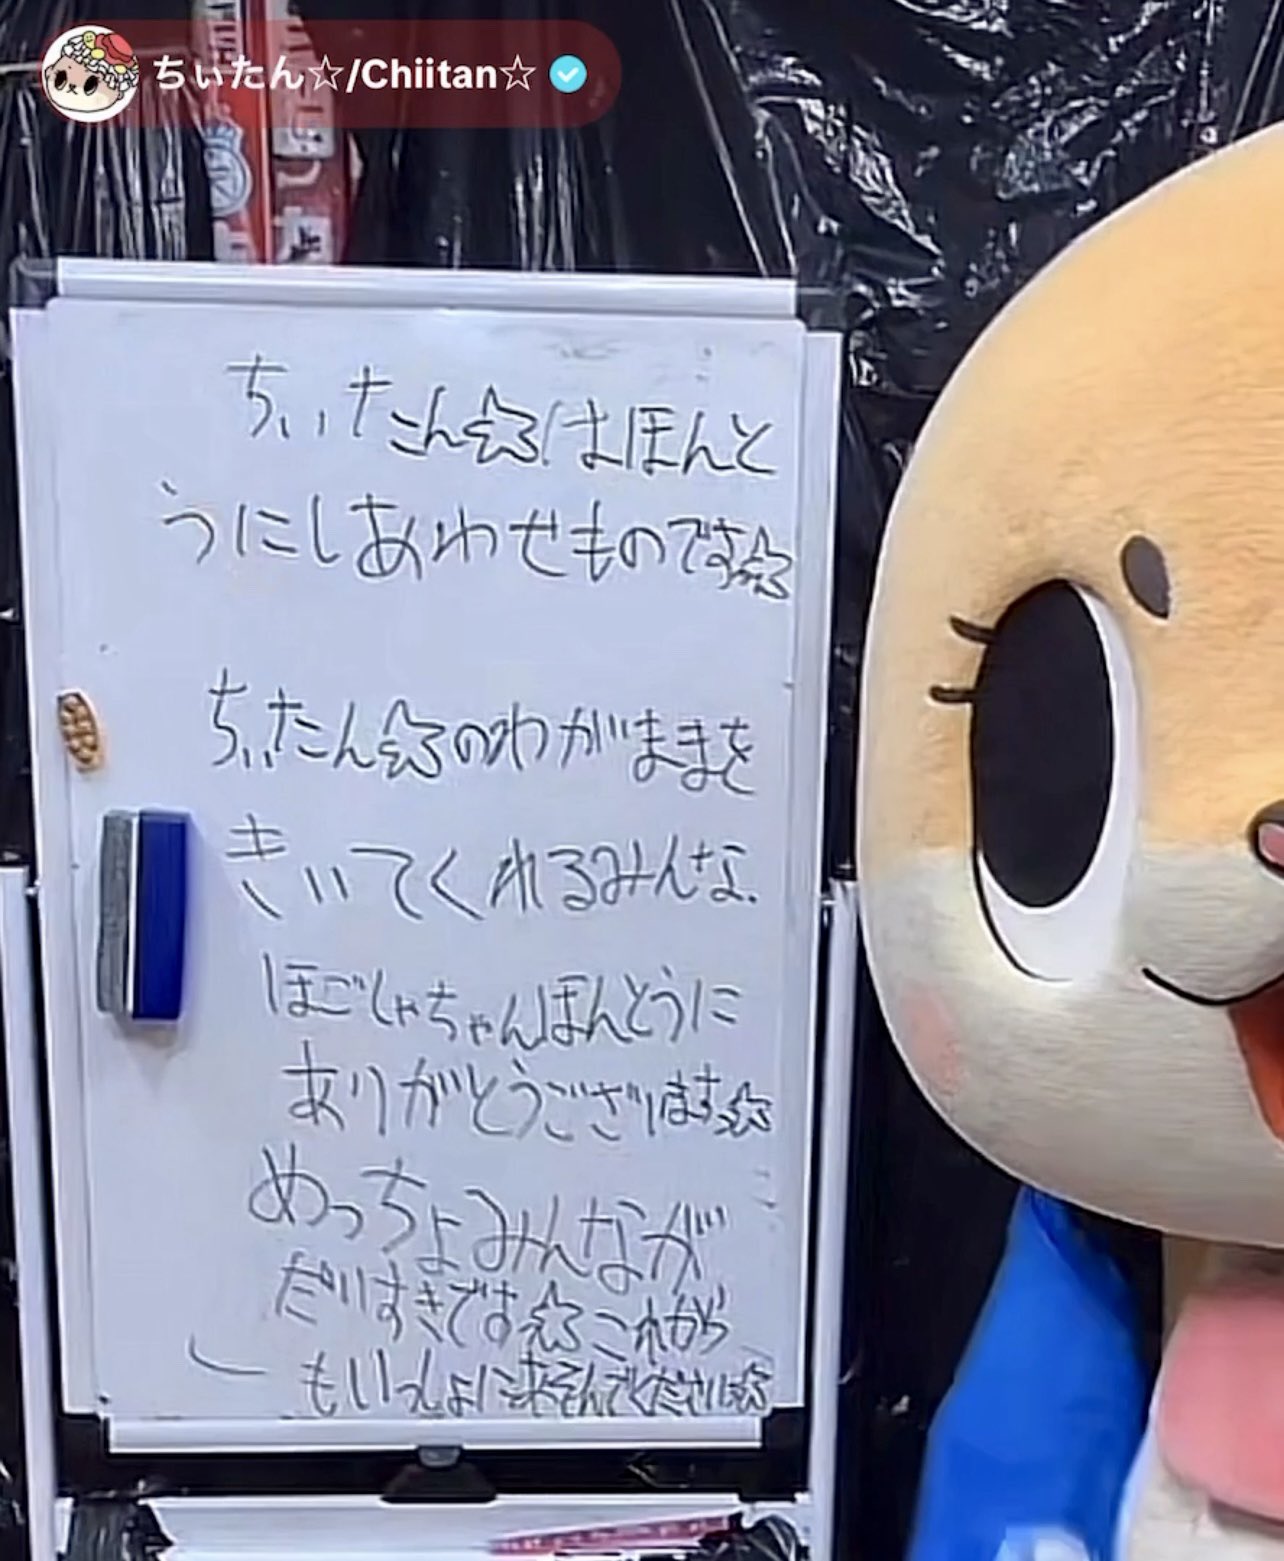 ちぃたん☆/Chiitan☆
ちぃたん☆はほんと
うにしあわせものです☆
ちぃたん☆のわがままを
きいてくれるみんな
ほごしゃちゃんほんとうに
ありがとうございます☆
めっちょみんなが
だいすきです☆これから
もいっしょにあそんでください☆